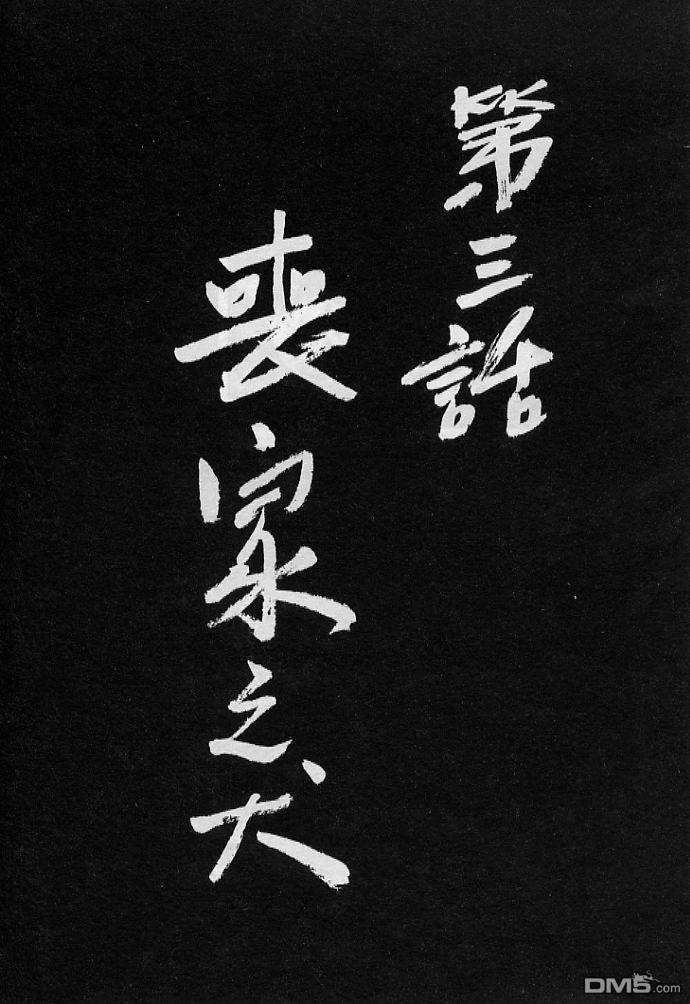 第三話
喪家之犬
DM5.com